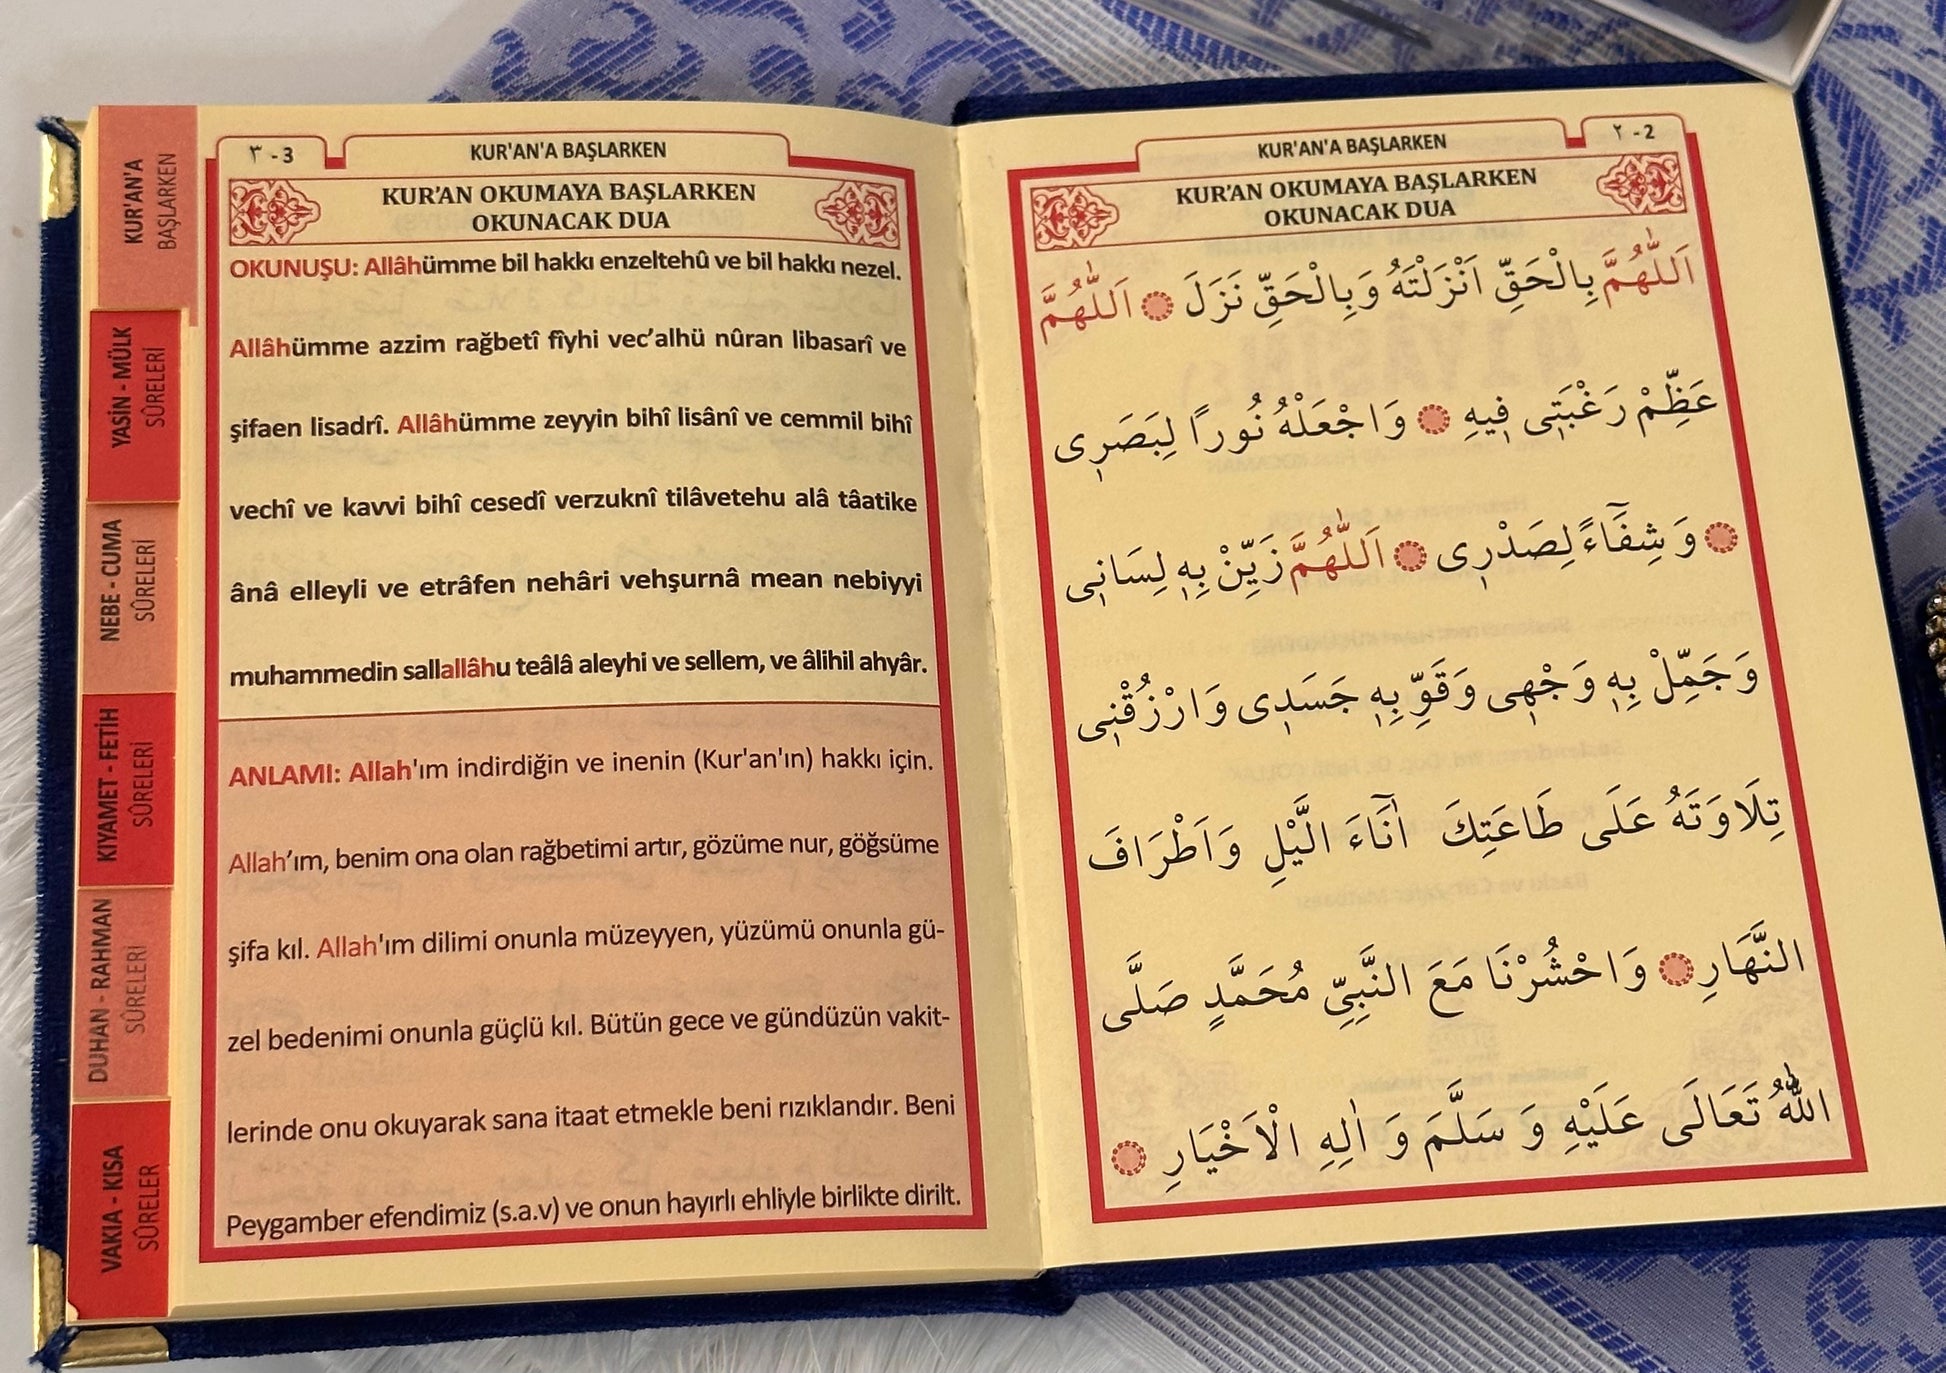 ٢ - 2
KUR'AN'A BAŞLARKEN
KUR'AN OKUMAYA BAŞLARKEN
OKUNACAK DUA
اَللّٰهُمَّ بِالْحَقِّ اَنْزَلْتَهُ وَبِالْحَقِّ نَزَلَ اَللّٰهُمَّ
عَظِّمْ رَغْبَتٖى فٖيهِ وَاجْعَلْهُ نُورًا لِبَصَرٖى
وَ شِفَٓاءً لِصَدْرٖى اَللّٰهُمَّ زَيِّنْ بِهٖ لِسَانٖى
وَجَمِّلْ بِهٖ وَجْهٖى وَقَوِّ بِهٖ جَسَدٖى وَارْزُقْنٖى
تِلَاوَتَهُ عَلَى طَاعَتِكَ اٰنَٓاءَ الَّيْلِ وَاَطْرَافَ
النَّهَارِ وَاحْشُرْنَا مَعَ النَّبِيِّ مُحَمَّدٍ صَلَّى
اللّٰهُ تَعَالَى عَلَيْهِ وَ سَلَّمَ وَ اٰلِهِ الْاَخْيَارِ
٣ - 3
KUR'AN'A BAŞLARKEN
KUR'AN OKUMAYA BAŞLARKEN
OKUNACAK DUA
OKUNUŞU: Allâhümme bil hakkı enzeltehû ve bil hakkı nezel.
Allâhümme azzim rağbetî fîyhi vec'alhü nûran libasarî ve
şifaen lisadrî. Allâhümme zeyyin bihî lisânî ve cemmil bihî
vechî ve kavvi bihî cesedî verzuknî tilâvetehu alâ tâatike
ânâ elleyli ve etrâfen nehâri vehşurnâ mean nebiyyi
muhammedin sallallâhu teâlâ aleyhi ve sellem, ve âlihil ahyâr.
ANLAMI: Allah'ım indirdiğin ve inenin (Kur'an'ın) hakkı için.
Allah'ım, benim ona olan rağbetimi artır, gözüme nur, göğsüme
şifa kıl. Allah'ım dilimi onunla müzeyyen, yüzümü onunla gü-
zel bedenimi onunla güçlü kıl. Bütün gece ve gündüzün vakit-
lerinde onu okuyarak sana itaat etmekle beni rızıklandır. Beni
Peygamber efendimiz (s.a.v) ve onun hayırlı ehliyle birlikte dirilt.
KUR'AN'A
BAŞLARKEN
YASİN - MÜLK
SÛRELERİ
NEBE - CUMA
SÛRELERİ
KIYAMET - FETİH
SÛRELERİ
DUHAN - RAHMAN
SÛRELERİ
VAKIA - KISA
SÛRELER